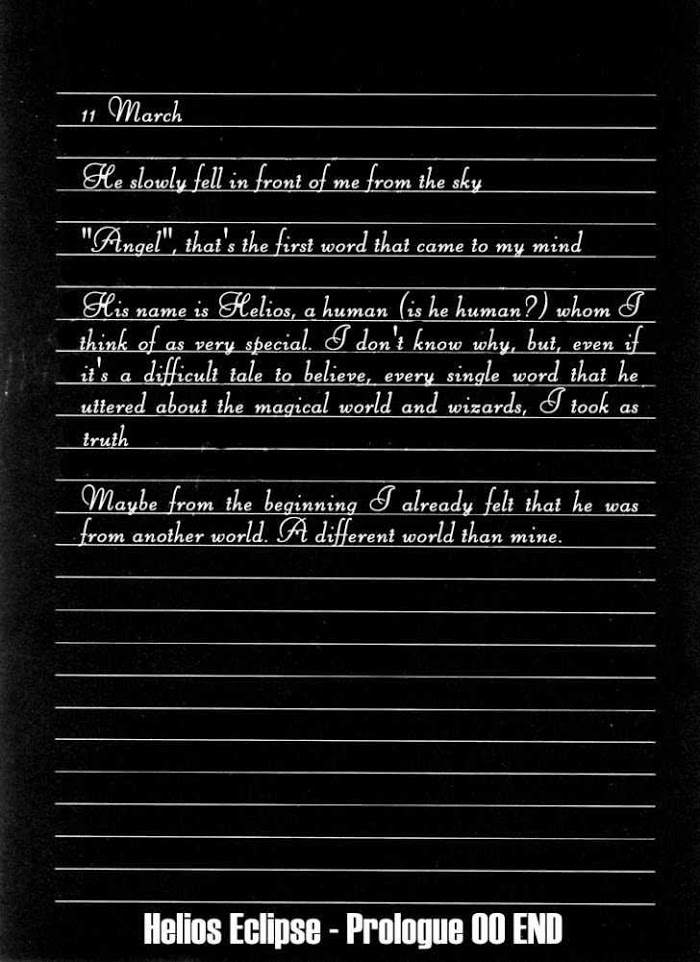 11 March
He slowly fell in front of me from the sky
"Angel", that's the first word that came to my mind
His name is Helios, a human (is he human?) whom I
think of as very special. I don't know why, but, even if
it's a difficult tale to believe, every single word that he
uttered about the magical world and wizards, I took as
truth
Maybe from the beginning I already felt that he was
from another world. A different world than mine.
Helios Eclipse - Prologue 00 END